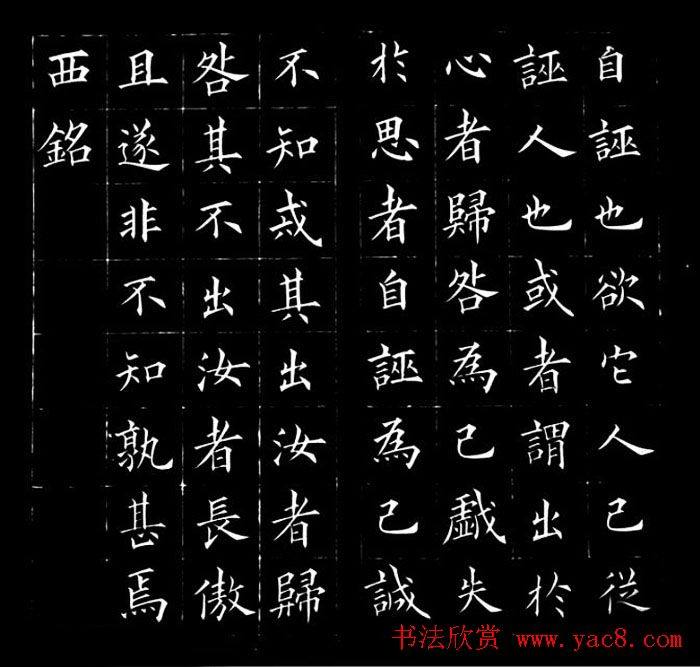 自誣也欲它人已從
誣人也或者謂出於
心者歸咎為己戲失
於思者自誣為己誠
不知戒其出汝者歸
咎其不出汝者長傲
且遂非不知孰甚焉
西銘
书法欣赏 www.yac8.com